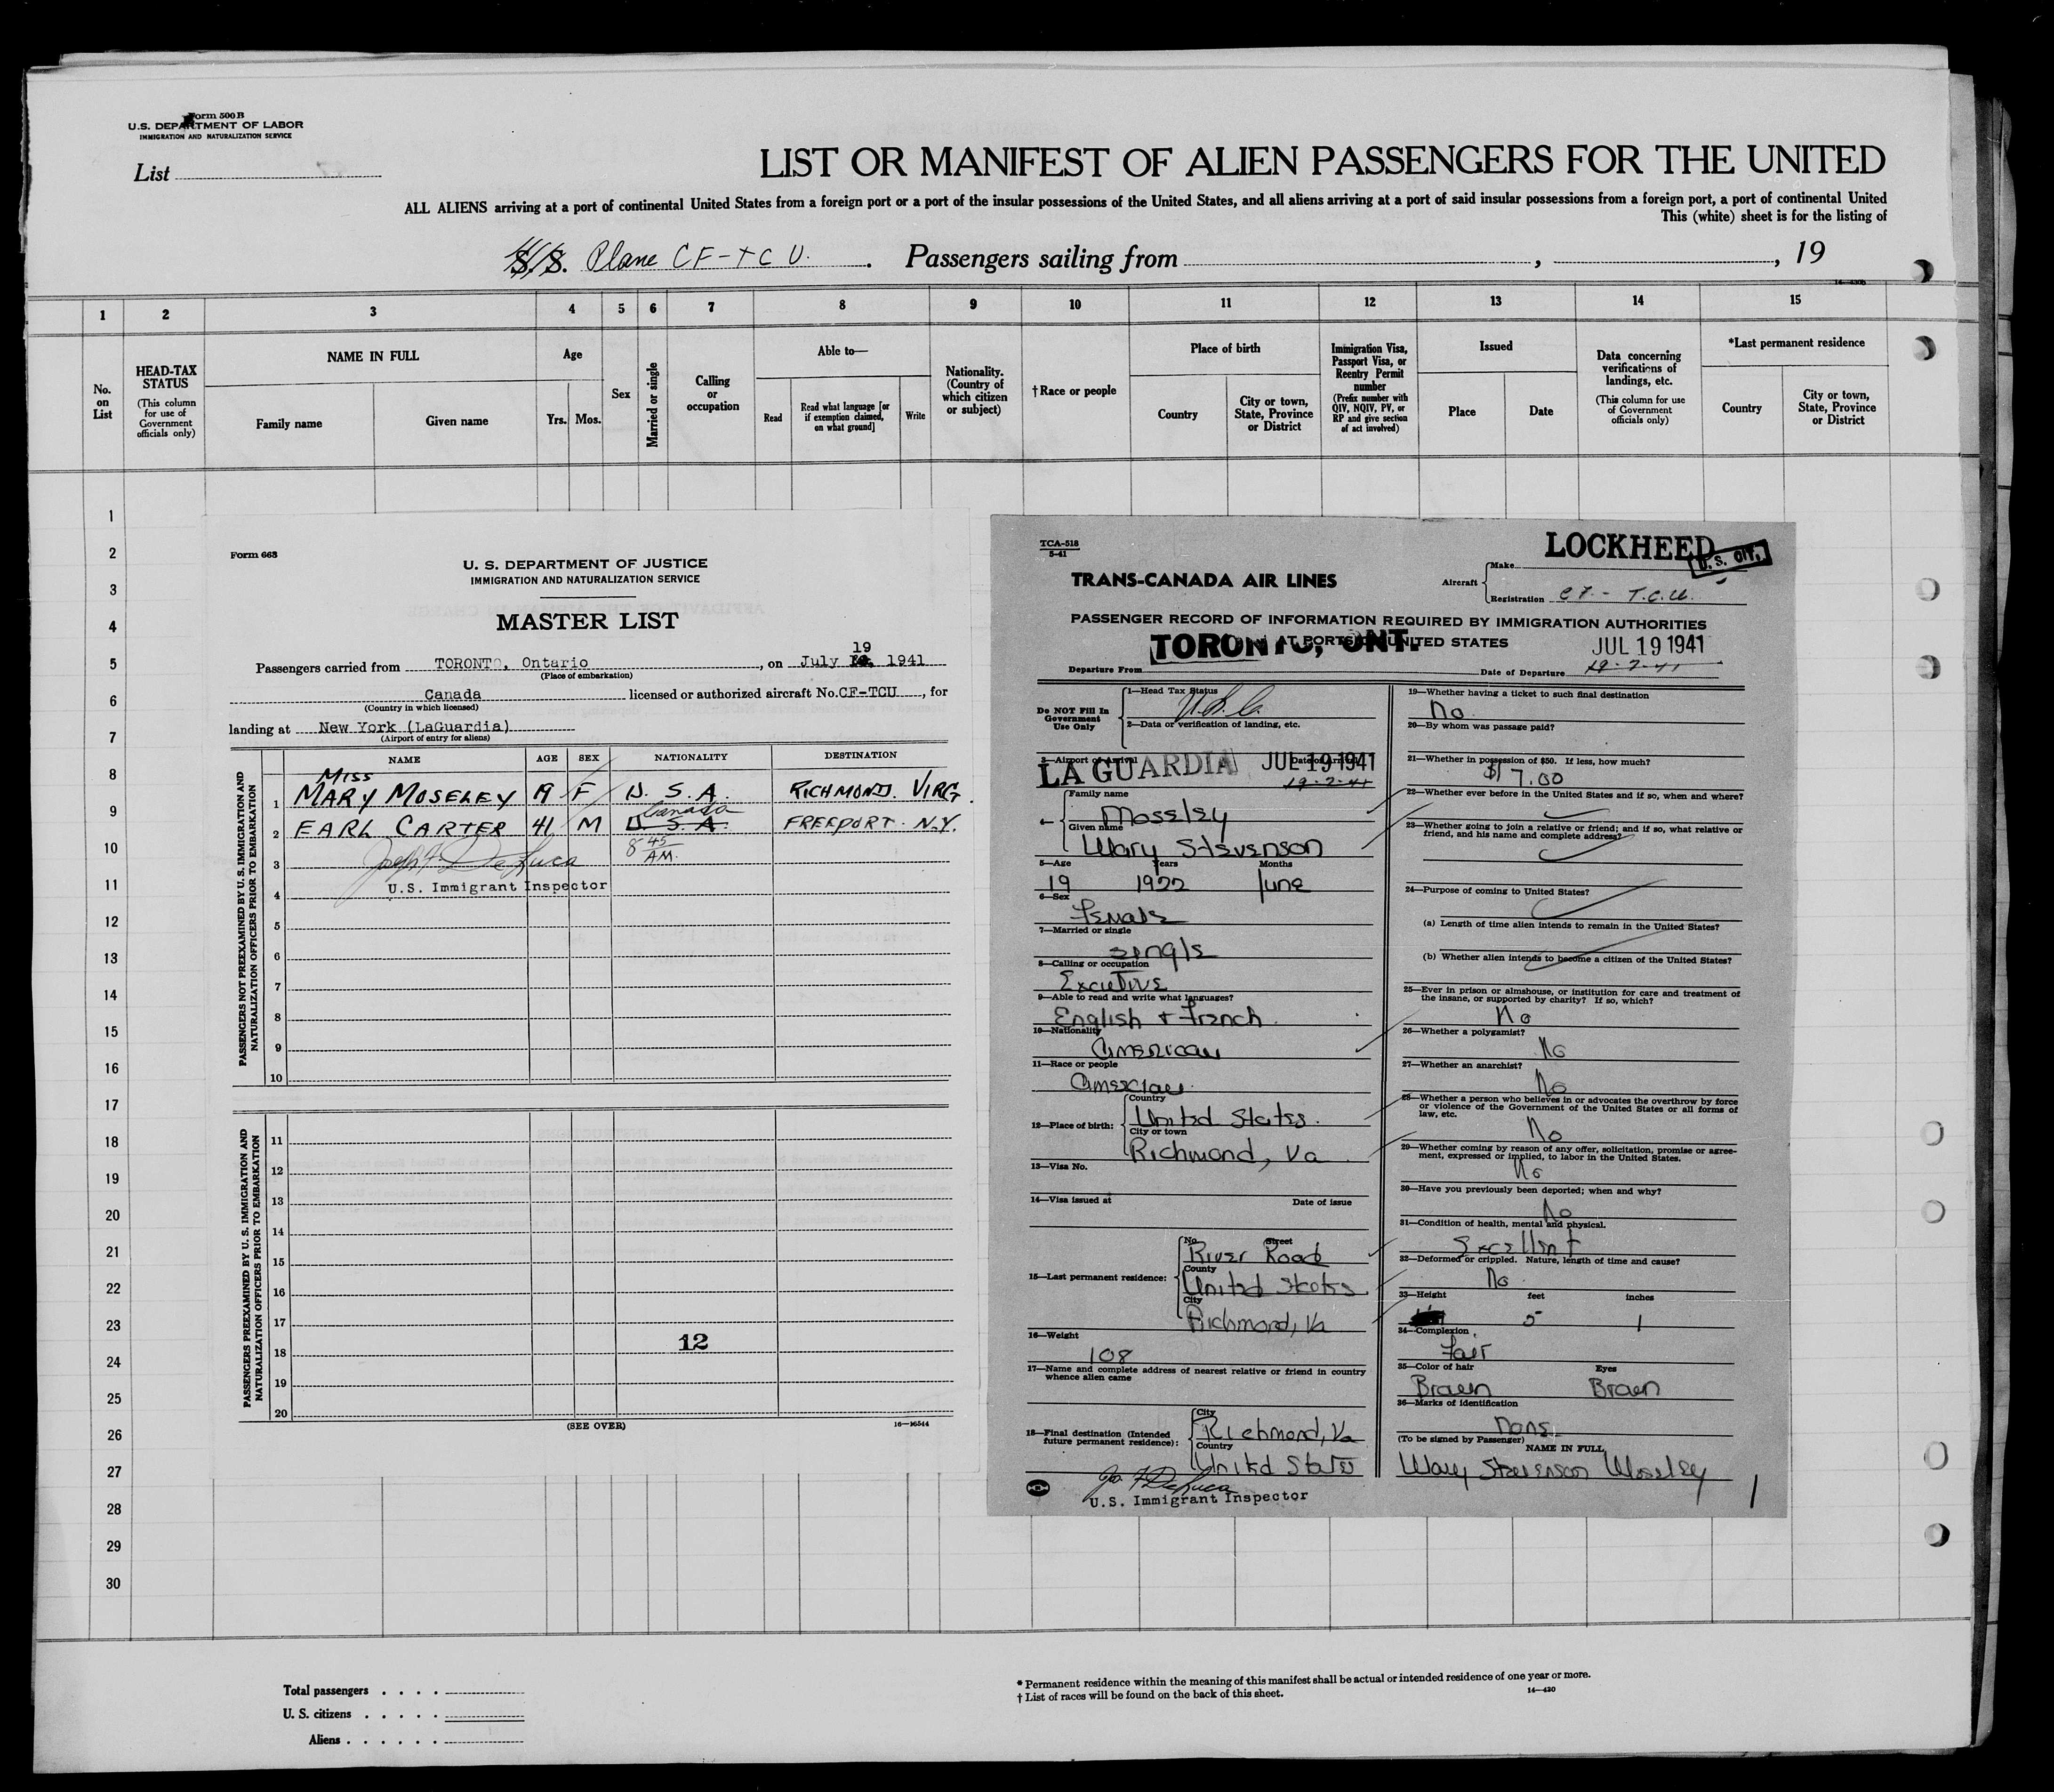 Form 500B
U.S. DEPARTMENT OF LABOR
IMMIGRATION AND NATURALIZATION SERVICE
List
LIST OR MANIFEST OF ALIEN PASSENGERS FOR THE UNITED
ALL ALIENS arriving at a port of continental United States from a foreign port or a port of the insular possessions of the United States, and all aliens arriving at a port of said insular possessions from a foreign port, a port of continental United
This (white) sheet is for the listing of
S.S. Plane CF-TCU. Passengers sailing from , , 19
1 2 3 4 5 6 7 8 9 10 11 12 13 14 15
No. on List
HEAD-TAX STATUS (This column for use of Government officials only)
NAME IN FULL
Family name Given name
Age
Yrs. Mos.
Sex
Married or single
Calling or occupation
Able to—
Read
Read what language [or if exemption claimed, on what ground]
Write
Nationality. (Country of which citizen or subject)
†Race or people
Place of birth
Country
City or town, State, Province or District
Immigration Visa, Passport Visa, or Reentry Permit number (Prefix number with QIV, NQIV, PV, or RP and give section of act involved)
Issued
Place Date
Data concerning verifications of landings, etc. (This column for use of Government officials only)
*Last permanent residence
Country
City or town, State, Province or District
1
2
3
4
5
6
7
8
9
10
11
12
13
14
15
16
17
18
19
20
21
22
23
24
25
26
27
28
29
30
Form 663
U. S. DEPARTMENT OF JUSTICE
IMMIGRATION AND NATURALIZATION SERVICE
MASTER LIST
Passengers carried from TORONTO, Ontario, on July 19 1941
(Place of embarkation)
Canada licensed or authorized aircraft No. CF-TCU, for
(Country in which licensed)
landing at New York (LaGuardia)
(Airport of entry for aliens)
NAME AGE SEX NATIONALITY DESTINATION
PASSENGERS NOT PREEXAMINED BY U. S. IMMIGRATION AND NATURALIZATION OFFICERS PRIOR TO EMBARKATION
1 Miss MARY MOSELEY 19 F U. S. A. RICHMOND. VIRG.
Canada
2 EARL CARTER 41 M U. S. A. FREEPORT. N.Y.
8 45 AM.
3 Joseph F. DeLuca
U.S. Immigrant Inspector
4
5
6
7
8
9
10
PASSENGERS PREEXAMINED BY U. S. IMMIGRATION AND NATURALIZATION OFFICERS PRIOR TO EMBARKATION
11
12
13
14
15
16
17
12
18
19
20
(SEE OVER)
16—16544
TCA-518
5-41
TRANS-CANADA AIR LINES
LOCKHEED
U.S. CIT.
Aircraft
Make
Registration CF - T.C.U.
PASSENGER RECORD OF INFORMATION REQUIRED BY IMMIGRATION AUTHORITIES
AT PORTS OF UNITED STATES
TORONTO, ONT.
JUL 19 1941
Departure From Date of Departure 19-7-41
Do NOT Fill In Government Use Only
1—Head Tax Status U.S.C.
2—Data or verification of landing, etc.
3—Airport of Arrival Date of Arrival
LA GUARDIA JUL 19 1941
19-7-41
4—
Family name
Moseley
Given name
Mary Stevenson
5—Age Years Months
19 1922 June
6—Sex
Female
7—Married or single
single
8—Calling or occupation
Excutive
9—Able to read and write what languages?
English + French
10—Nationality
American
11—Race or people
American
12—Place of birth:
Country
United States.
City or town
Richmond, Va
13—Visa No.
14—Visa issued at Date of issue
15—Last permanent residence:
No. Street
River Road
County
United States
City
Richmond, Va
16—Weight
108
17—Name and complete address of nearest relative or friend in country whence alien came
18—Final destination (Intended future permanent residence):
City
Richmond, Va
Country
United States
Jos. F. DeLuca
U.S. Immigrant Inspector
19—Whether having a ticket to such final destination
No
20—By whom was passage paid?
21—Whether in possession of $50. If less, how much?
$17.00
22—Whether ever before in the United States and if so, when and where?
23—Whether going to join a relative or friend; and if so, what relative or friend, and his name and complete address?
24—Purpose of coming to United States?
(a) Length of time alien intends to remain in the United States?
(b) Whether alien intends to become a citizen of the United States?
25—Ever in prison or almshouse, or institution for care and treatment of the insane, or supported by charity? If so, which?
No
26—Whether a polygamist?
No
27—Whether an anarchist?
No
28—Whether a person who believes in or advocates the overthrow by force or violence of the Government of the United States or all forms of law, etc.
No
29—Whether coming by reason of any offer, solicitation, promise or agreement, expressed or implied, to labor in the United States.
No
30—Have you previously been deported; when and why?
No
31—Condition of health, mental and physical.
Excellent
32—Deformed or crippled. Nature, length of time and cause?
No
33—Height feet inches
5 1
34—Complexion
Fair
35—Color of hair Eyes
Brown Brown
36—Marks of identification
None
(To be signed by Passenger) NAME IN FULL
Mary Stevenson Moseley
1
Total passengers
U. S. citizens
Aliens
* Permanent residence within the meaning of this manifest shall be actual or intended residence of one year or more.
† List of races will be found on the back of this sheet.
14—430